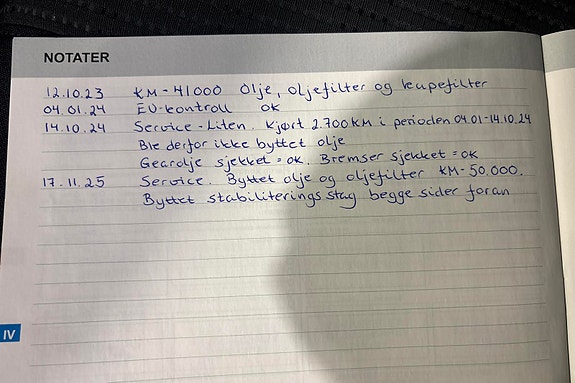 NOTATER
12.10.23 KM-41000 Olje, oljefilter og kupefilter
04.01.24 EU-kontroll OK
14.10.24 Service-Liten. Kjørt 2.700KM i perioden 04.01-14.10.24
Ble derfor ikke byttet olje
Gearolje sjekket=OK. Bremser sjekket=OK
17.11.25 Service. Byttet olje og oljefilter KM-50.000.
Byttet stabiliteringsstag begge sider foran
IV